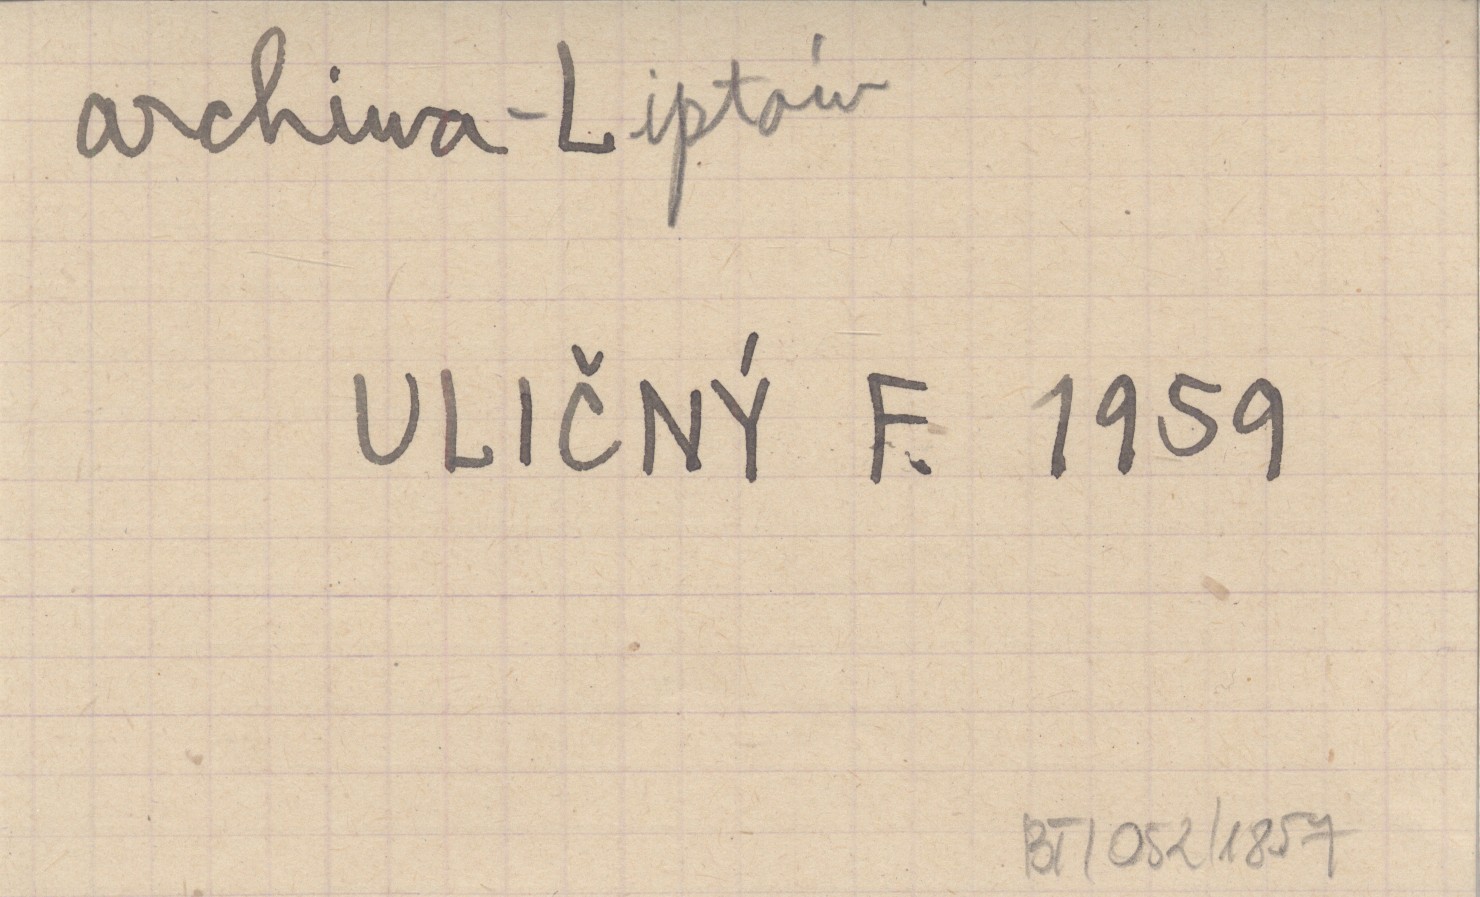 archiwa - Liptów
ULIČNÝ F. 1959
BT/052/1857